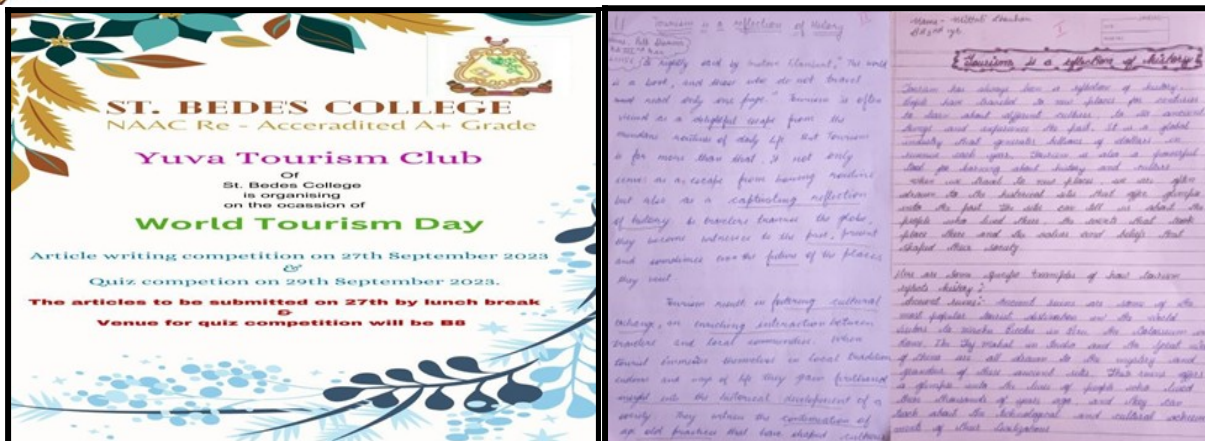 ST. BEDE'S COLLEGE
NAAC Re - Acceradited A+ Grade
Yuva Tourism Club
Of
St. Bedes College
is organising
on the ocassion of
World Tourism Day
Article writing competition on 27th September 2023
&
Quiz competion on 29th September 2023.
The articles to be submitted on 27th by lunch break
&
Venue for quiz competition will be B8
II Tourism is a reflection of History
is a book, and those who do not travel
read only one page." Tourism is often
viewed as a delightful escape from the
mundane routines of daily life. But Tourism
is far more than that. It not only
serves as a escape from boring routine
but also as a captivating reflection
of history. As travelers traverse the globe,
they become witnesses to the past, present
and sometimes even the future of the places
they visit.
Tourism result in fostering cultural
exchange, an enriching interaction between
travelers and local communities. When
tourist immerses themselves in local tradition
customs and way of life they gain firsthand
insight into the historical development of a
society. They witness the continuation of
age old practices that have shaped cultures
Name -
I
Tourism is a reflection of history
Tourism has always been a reflection of history.
People have traveled to new places for centuries
to learn about different cultures, to see ancient
things and experience the past. It is a global
industry that generates billions of dollars in
revenue each year. Tourism is also a powerful
tool for learning about history and culture.
When we travel to new places, we are often
drawn to the historical sites that offer glimpse
into the past. The sites can tell us about the
people who lived there, the events that took
place there and the values and beliefs that
shaped their society.
Here are some specific examples of how tourism
reflects history:
Ancient ruins:- Ancient ruins are some of the
most popular tourist destination in the world
Peru, the Colosseum in
Rome, The Taj Mahal in India and the Great
of China are all drawn to the mystery and
grandeur of these ancient sites. These ruins offers
a glimpse into the lives of people who lived
there thousands of years ago and they can
teach about the technological and cultural achieve
ments of these civilizations